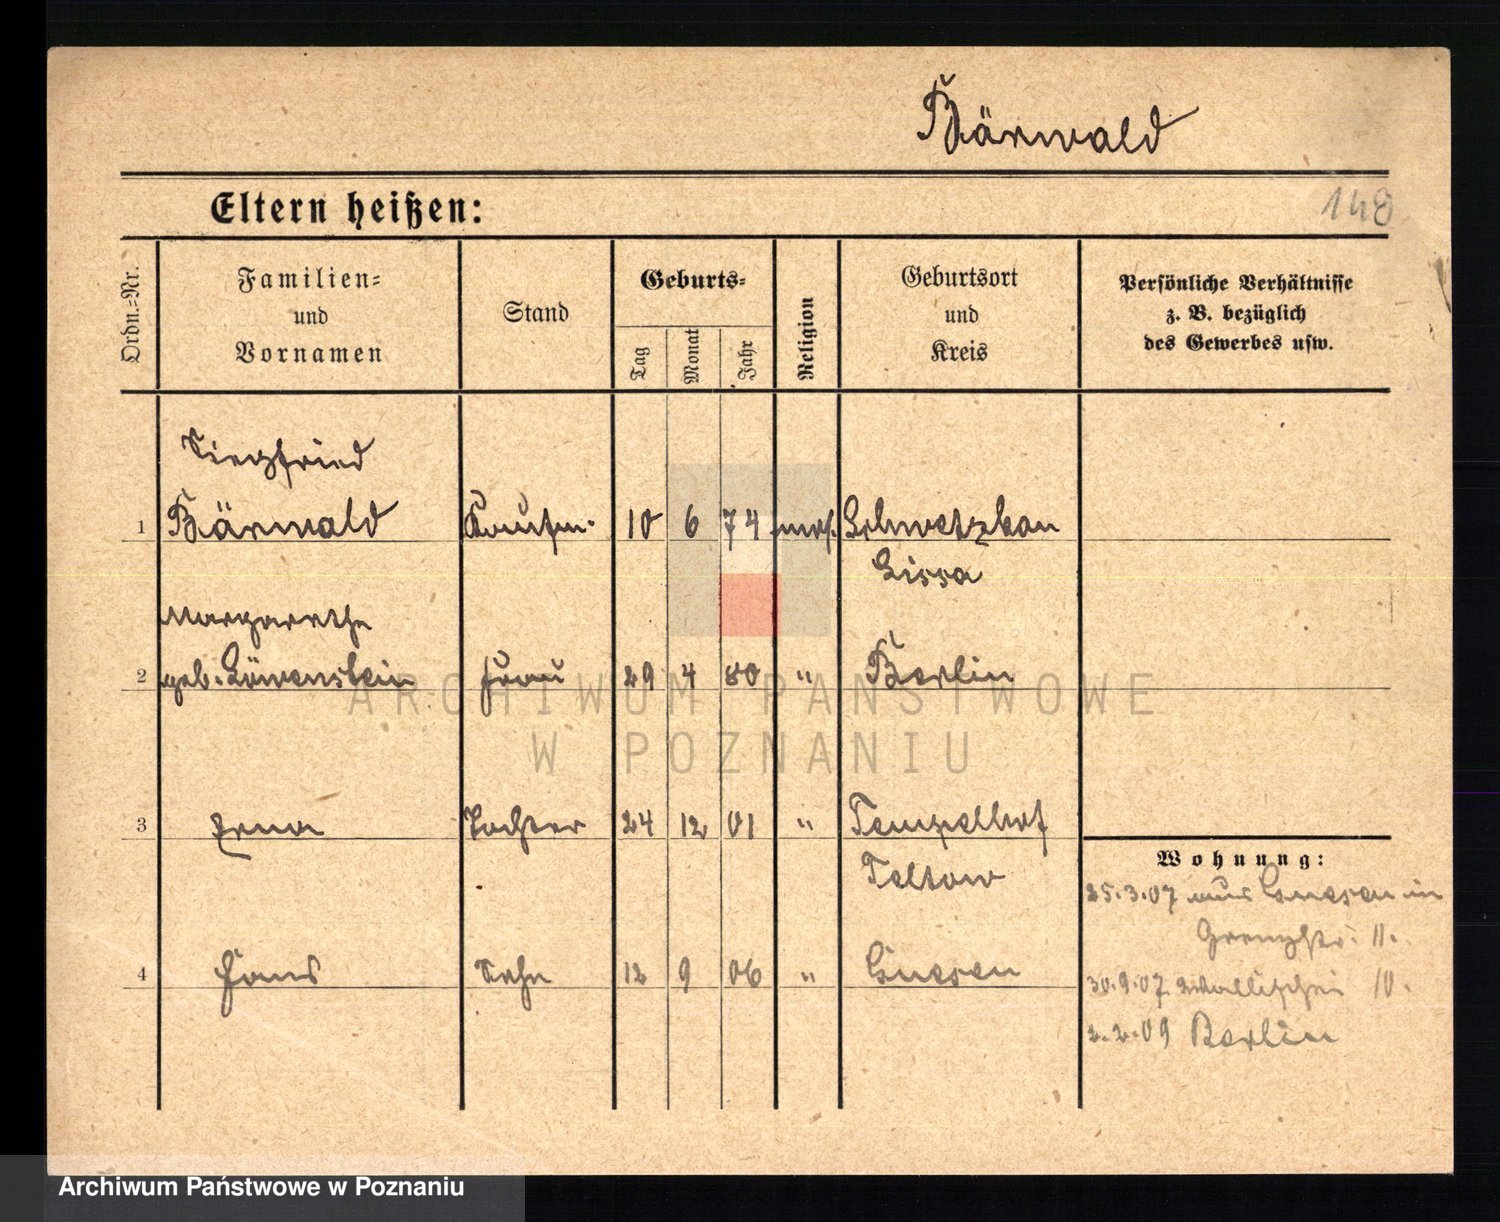 Bärwald
Eltern heißen:
148
Ordn.=Nr.
Familien=
und
Vornamen
Stand
Geburts=
Tag
Monat
Jahr
Religion
Geburtsort
und
Kreis
Persönliche Verhältnisse
z. B. bezüglich
des Gewerbes usw.
Siegfried
1 Bärwald Kaufm. 10 6 74 mos. Schwetzkau
Lissa
Margarethe
2 geb. Löwenstein Frau 29 4 80 " Berlin
3 Erna Tochter 24 12 01 " Tempelhof
Teltow
4 Hans Sohn 12 9 06 " Gnesen
Wohnung:
25.3.07 aus Gnesen in
11.
30.9.07 Wallischei 10.
2.2.09 Berlin
ARCHIWUM PAŃSTWOWE
W POZNANIU
Archiwum Państwowe w Poznaniu